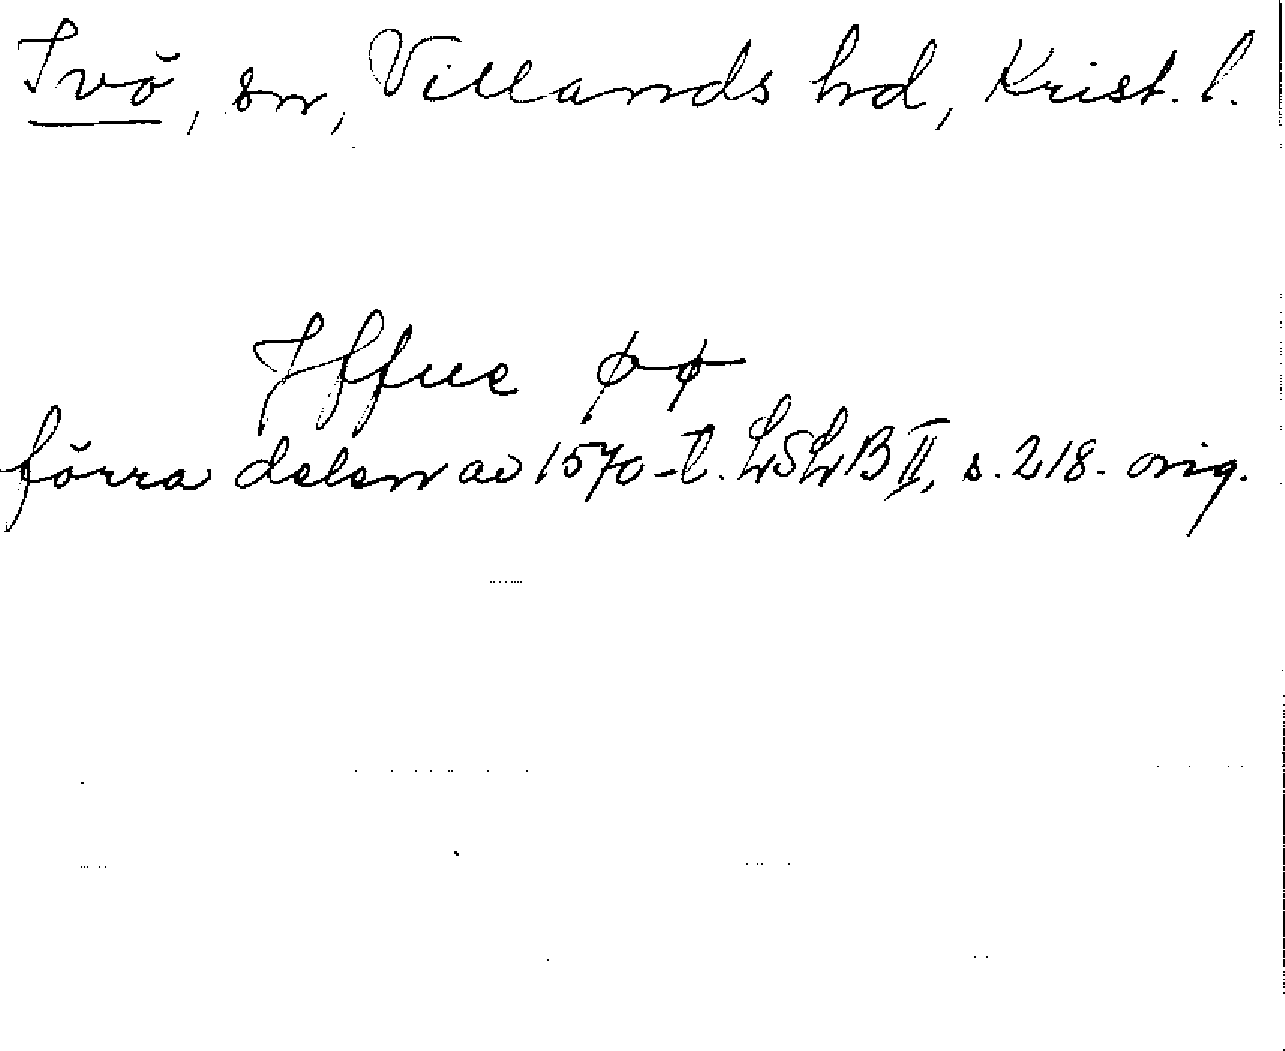 Ivö, sn, Villands hd, Krist. l.
Iffue
förra delen av 1570-t. LSLB II, s. 218. orig.